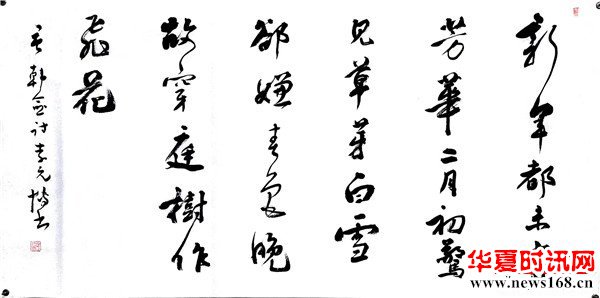 新年都未有
芳華二月初驚
見草芽白雪
卻嫌春色晚
故穿庭樹作
飛花
韓愈诗李元书
华夏时讯网
www.news168.cn